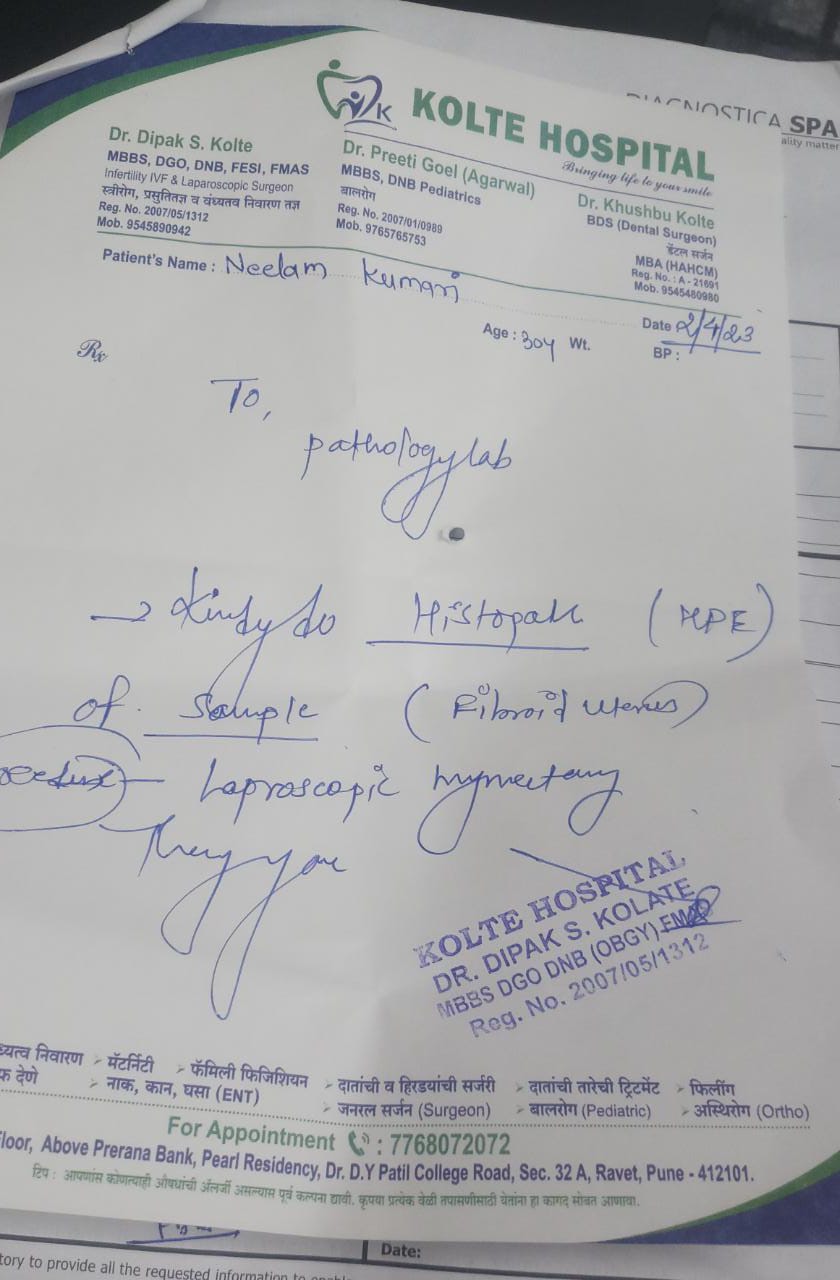 DIAGNOSTICA SPA
ality matter
KOLTE HOSPITAL
Bringing life to your smile
Dr. Dipak S. Kolte
MBBS, DGO, DNB, FESI, FMAS
Infertility IVF & Laparoscopic Surgeon
स्त्रीरोग, प्रसुतितज्ञ व वंध्यतव निवारण तज्ञ
Reg. No. 2007/05/1312
Mob. 9545890942
Dr. Preeti Goel (Agarwal)
MBBS, DNB Pediatrics
बालरोग
Reg. No. 2007/01/0989
Mob. 9765765753
Dr. Khushbu Kolte
BDS (Dental Surgeon)
डेंटल सर्जन
MBA (HAHCM)
Reg. No. : A - 21691
Mob. 9545480980
Patient's Name : Neelam Kumari
Date 2/4/23
Age : 30y Wt.
BP :
Rx
To,
pathology lab
→ Kindly do Histopath (HPE)
of sample (Fibroid uterus)
Laproscopic
KOLTE HOSPITAL
DR. DIPAK S. KOLATE
MBBS DGO DNB (OBGY)
Reg. No. 2007/05/1312
ध्यत्व निवारण ➢ मॅटर्निटी ➢ फॅमिली फिजिशियन ➢ दातांची व हिरडयांची सर्जरी ➢ दातांची तारेची ट्रिटमेंट ➢ फिलींग
फ देणे ➢ नाक, कान, घसा (ENT) ➢ जनरल सर्जन (Surgeon) ➢ बालरोग (Pediatric) ➢ अस्थिरोग (Ortho)
For Appointment : 7768072072
loor, Above Prerana Bank, Pearl Residency, Dr. D.Y Patil College Road, Sec. 32 A, Ravet, Pune - 412101.
टिप : आपणांस कोणत्याही औषधांची ॲलर्जी असल्यास पूर्व कल्पना द्यावी. कृपया प्रत्येक वेळी तपासणीसाठी येतांना हा कागद सोबत आणावा.
Date:
tory to provide all the requested information to